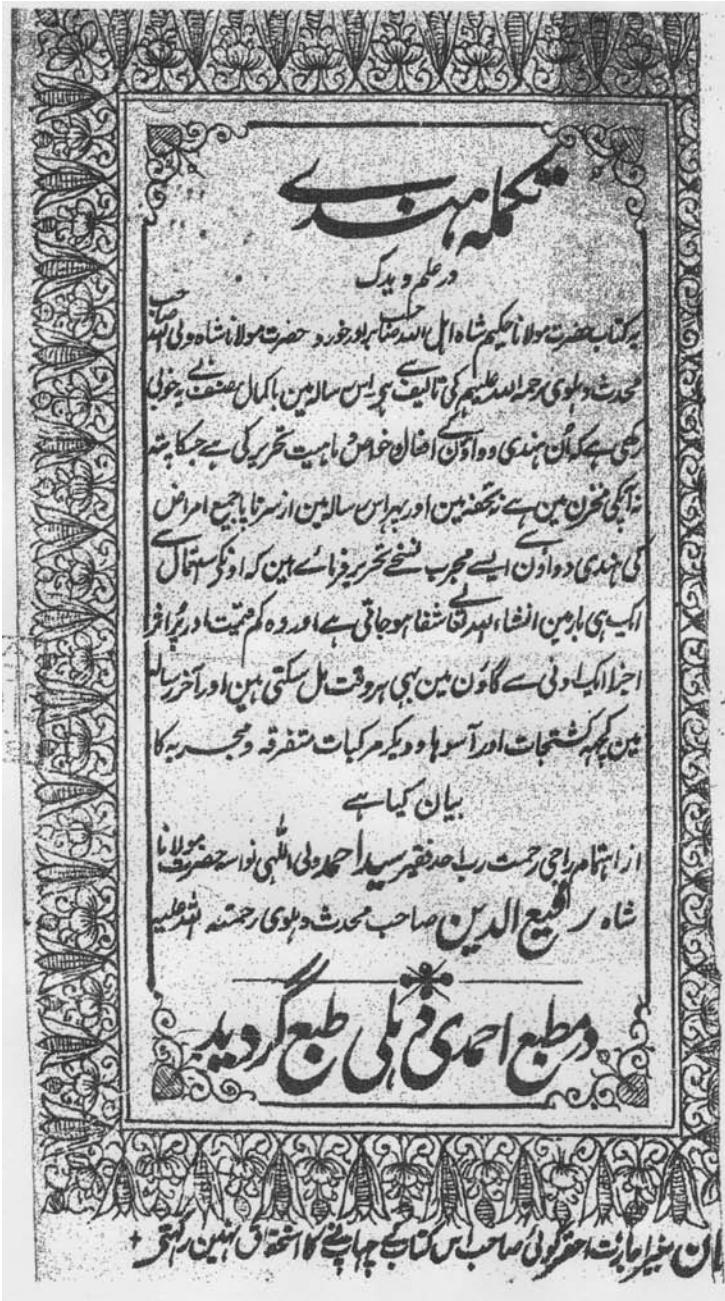 تکملہ ہندی
در علم ویدک
یہ کتاب حضرت مولانا حکیم شاہ اہل اللہ صاحب برادر خورد حضرت مولانا شاہ ولی اللہ صاحب
محدث دہلوی رحمۃ اللہ علیہم کی تالیف سے ہی اس رسالہ مین باکمال مصنف نے یہ خوبی
رکھی ہے کہ اُن ہندی دواؤن کے افعال خواص و ماہیت تحریر کی ہے جسکا پتہ
نہ آپکی مخزن مین ہے نہ تحفہ مین اور پہر اس رسالہ مین از سر تا پا جمیع امراض
کی ہندی دواؤن کے ایسے مجرب نسخے تحریر فرمائے ہین کہ اونکے استعمال سے
ایک ہی بار مین انشاء اللہ تعالی شفا ہو جاتی ہے اور وہ کم قیمت اور پُر اثر
اجزا ایک ادنی سے گاؤن مین بہی ہر وقت مل سکتی ہین اور آخر رسالہ
مین کچہہ کشتجات اور آسوہا و دیگر مرکبات متفرقہ و مجربہ کا
بیان کیا ہے
از اہتمام راجی رحمت رب احد فقیر سید احمد ولی اللہی نواسہ حضرت مولانا
شاہ رفیع الدین صاحب محدث دہلوی رحمتہ اللہ علیہ
در مطبع احمدی دہلی طبع گردید
بغیر اجازت احقر کوئی صاحب اس کتاب کے چہاپنے کا استحقاق نہین رکہتی +